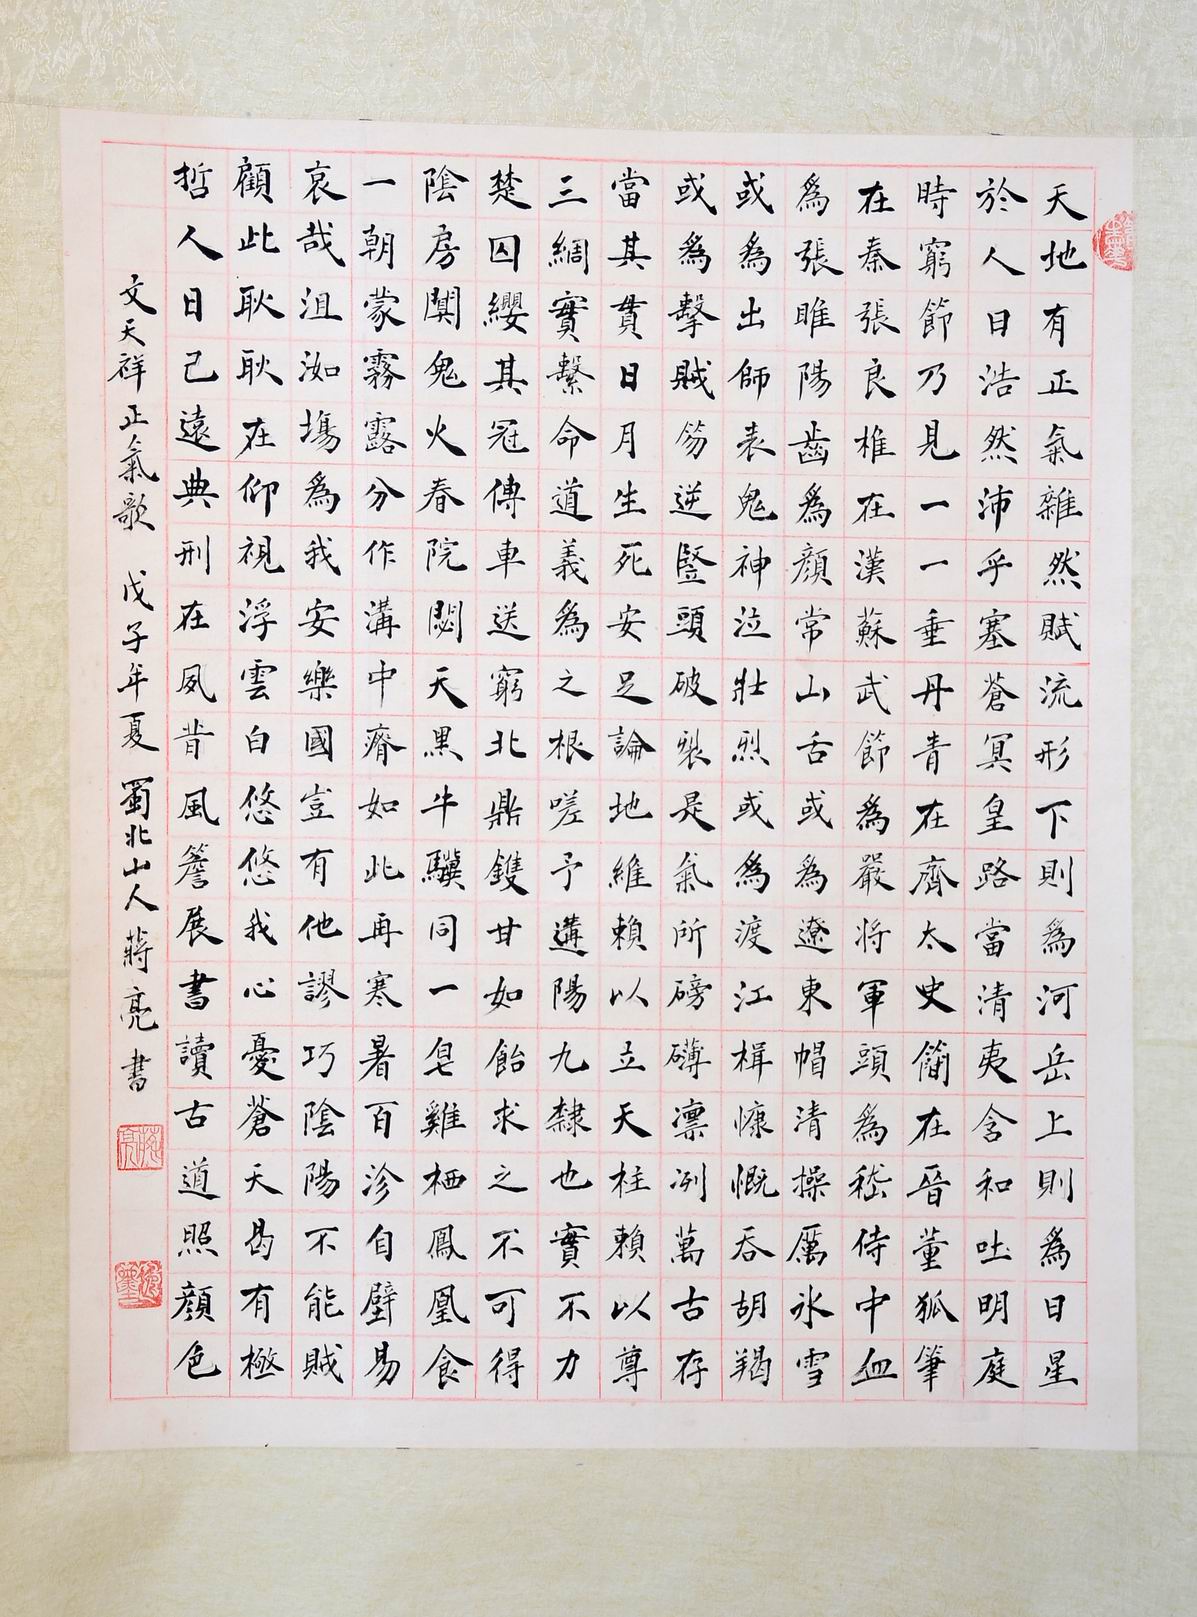 天地有正氣雜然賦流形下則為河岳上則為日星
於人日浩然沛乎塞蒼冥皇路當清夷含和吐明庭
時窮節乃見一一垂丹青在齊太史簡在晉董狐筆
在秦張良椎在漢蘇武節為嚴將軍頭為嵇侍中血
為張睢陽齒為顏常山舌或為遼東帽清操厲冰雪
或為出師表鬼神泣壯烈或為渡江楫慷慨吞胡羯
或為擊賊笏逆豎頭破裂是氣所磅礴凛冽萬古存
當其貫日月生死安足論地維賴以立天柱賴以尊
三綱實繫命道義為之根嗟予遘陽九隸也實不力
楚囚纓其冠傳車送窮北鼎鑊甘如飴求之不可得
陰房闃鬼火春院閟天黑牛驥同一皂雞栖鳳凰食
一朝蒙霧露分作溝中瘠如此再寒暑百沴自辟易
哀哉沮洳場為我安樂國豈有他謬巧陰陽不能賊
顧此耿耿在仰視浮雲白悠悠我心憂蒼天曷有極
哲人日已遠典刑在夙昔風簷展書讀古道照顏色
文天祥正氣歌 戊子年夏 蜀北山人蔣亮書